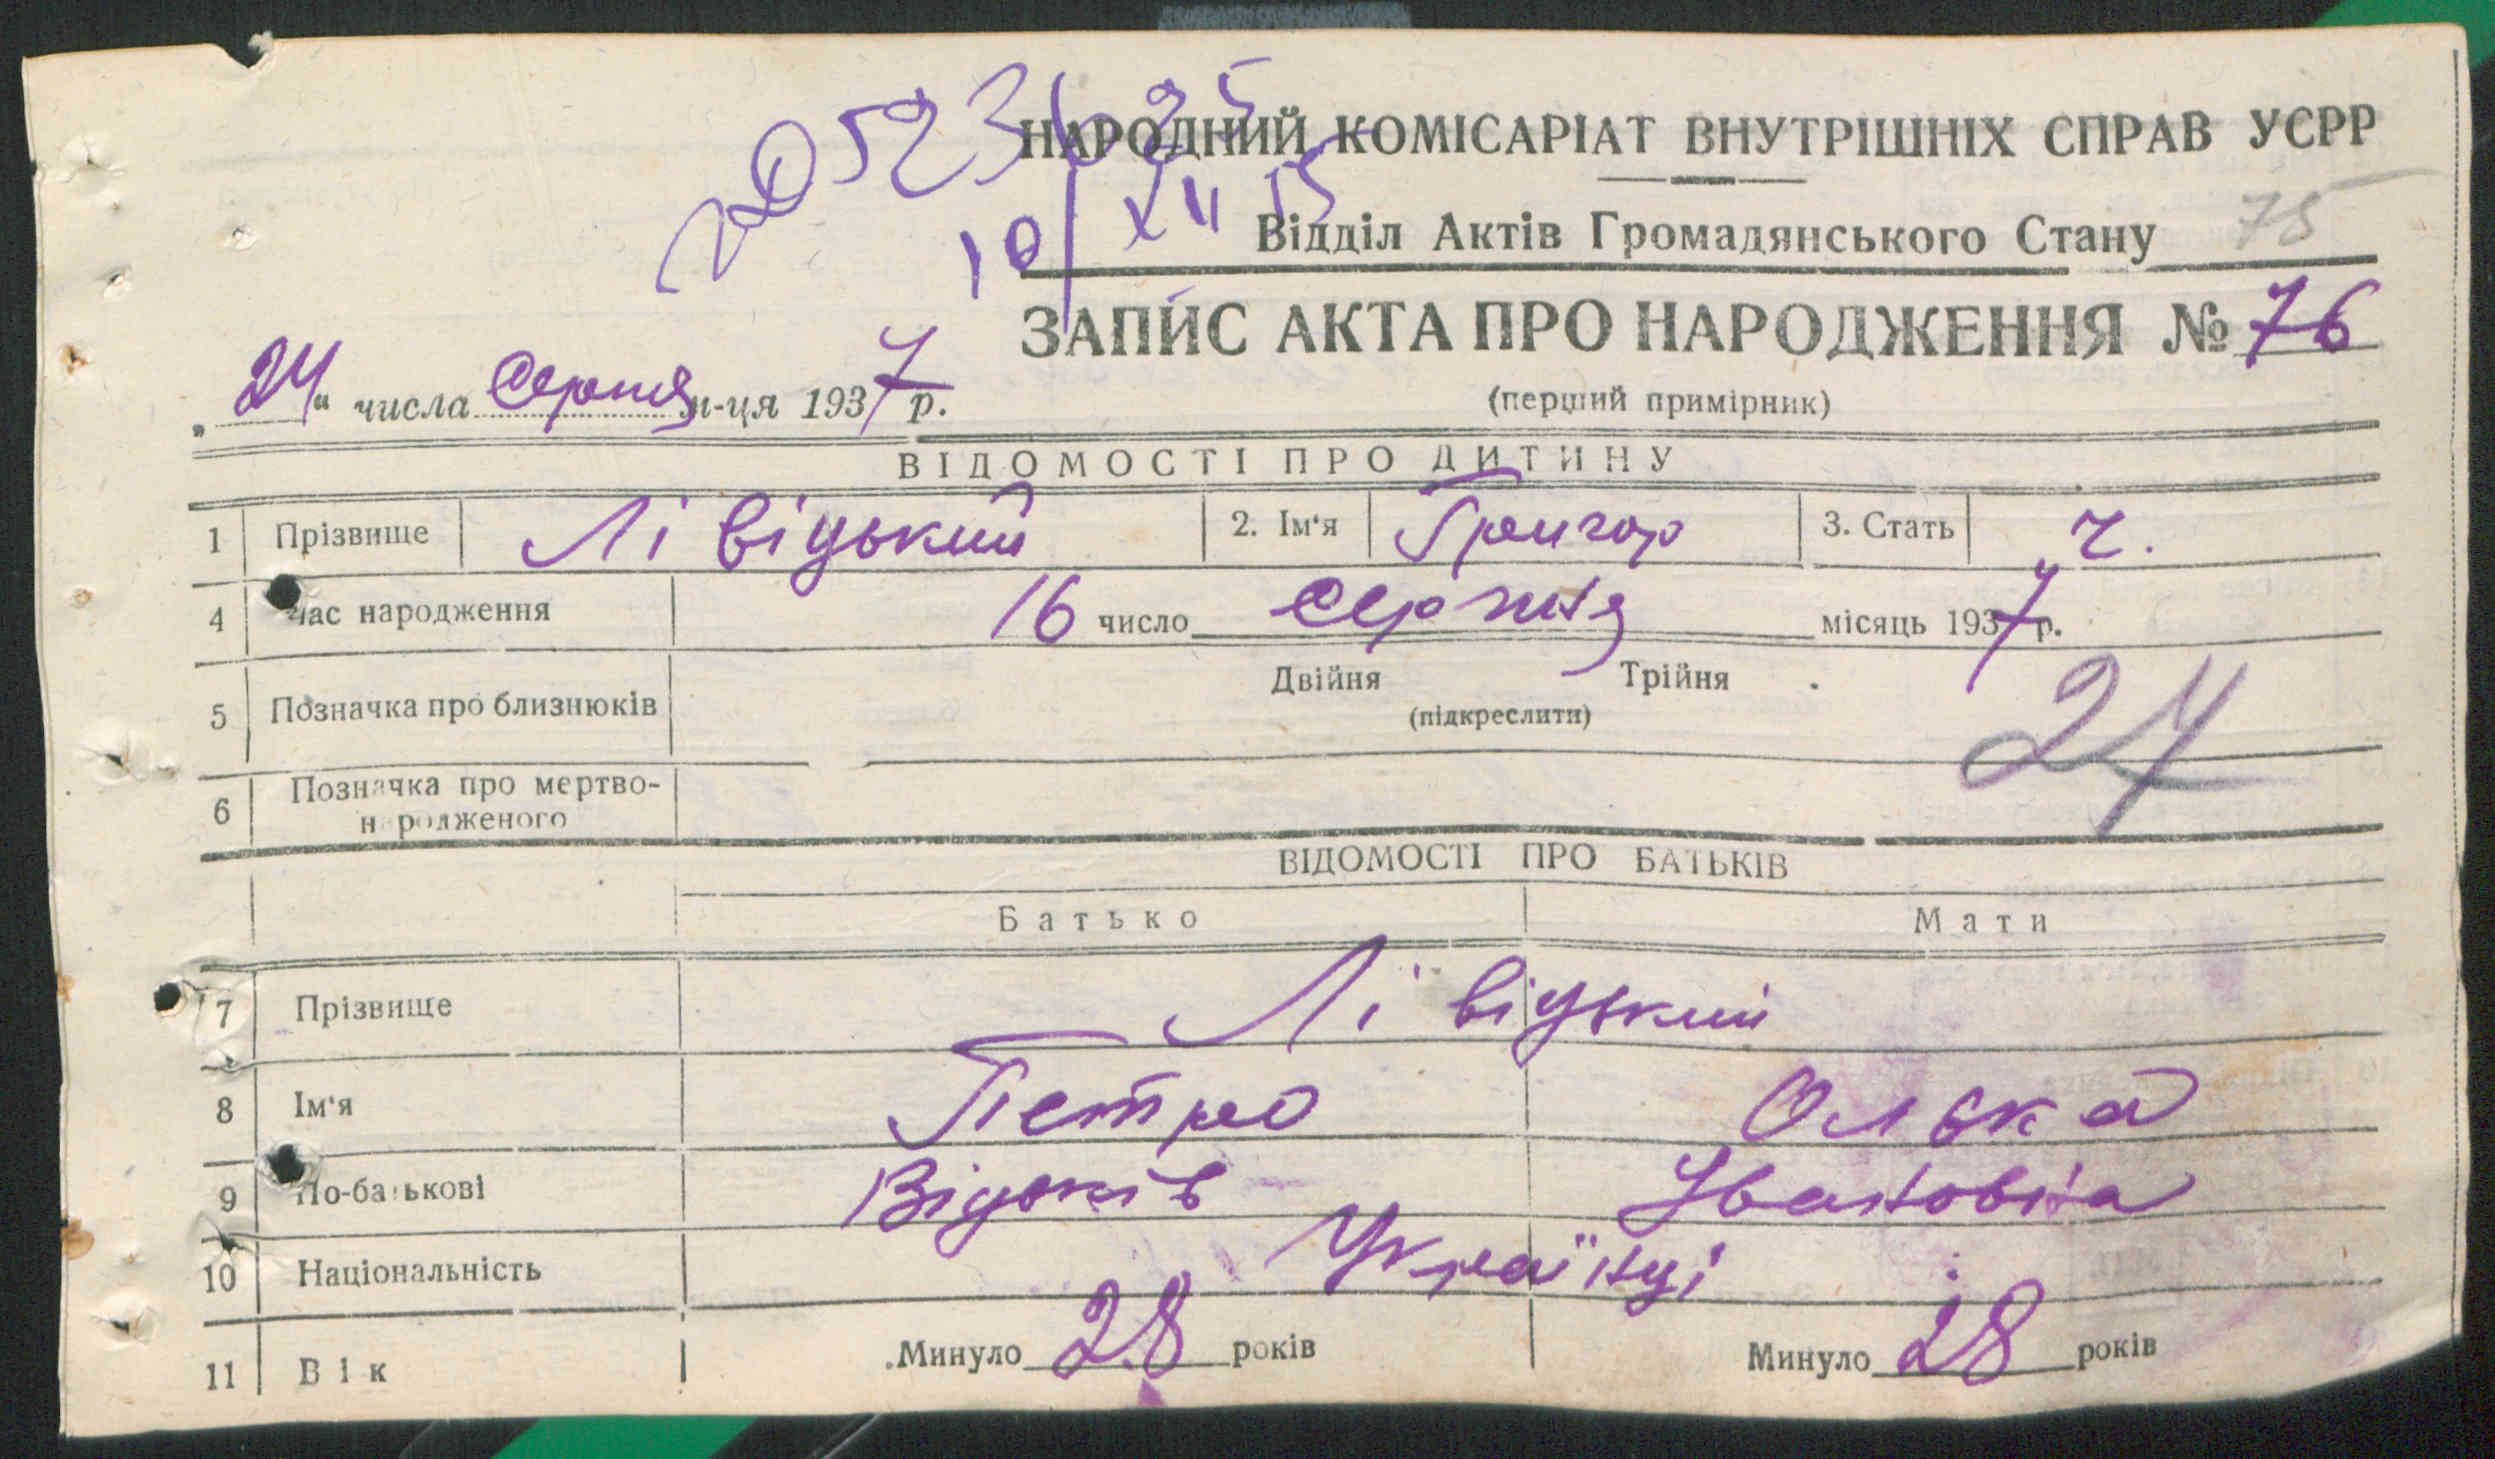 НАРОДНИЙ КОМІСАРІАТ ВНУТРІШНІХ СПРАВ УСРР
10/XII 15
Відділ Актів Громадянського Стану 75
ЗАПИС АКТА ПРО НАРОДЖЕННЯ № 76
„24“ числа серпня м-ця 1937 р.
(перший примірник)
ВІДОМОСТІ ПРО ДИТИНУ
1 Прізвище Лівіцький 2. Ім‘я Григор 3. Стать ч.
4 Час народження 16 число серпня місяць 1937 р.
5 Позначка про близнюків Двійня Трійня
(підкреслити)
24
6 Позначка про мертво-
народженого
ВІДОМОСТІ ПРО БАТЬКІВ
Батько Мати
7 Прізвище Лівіцький
8 Ім‘я Петро Олька
9 По-батькові Івановна
10 Національність Українці
11 Вік Минуло 28 років Минуло 28 років